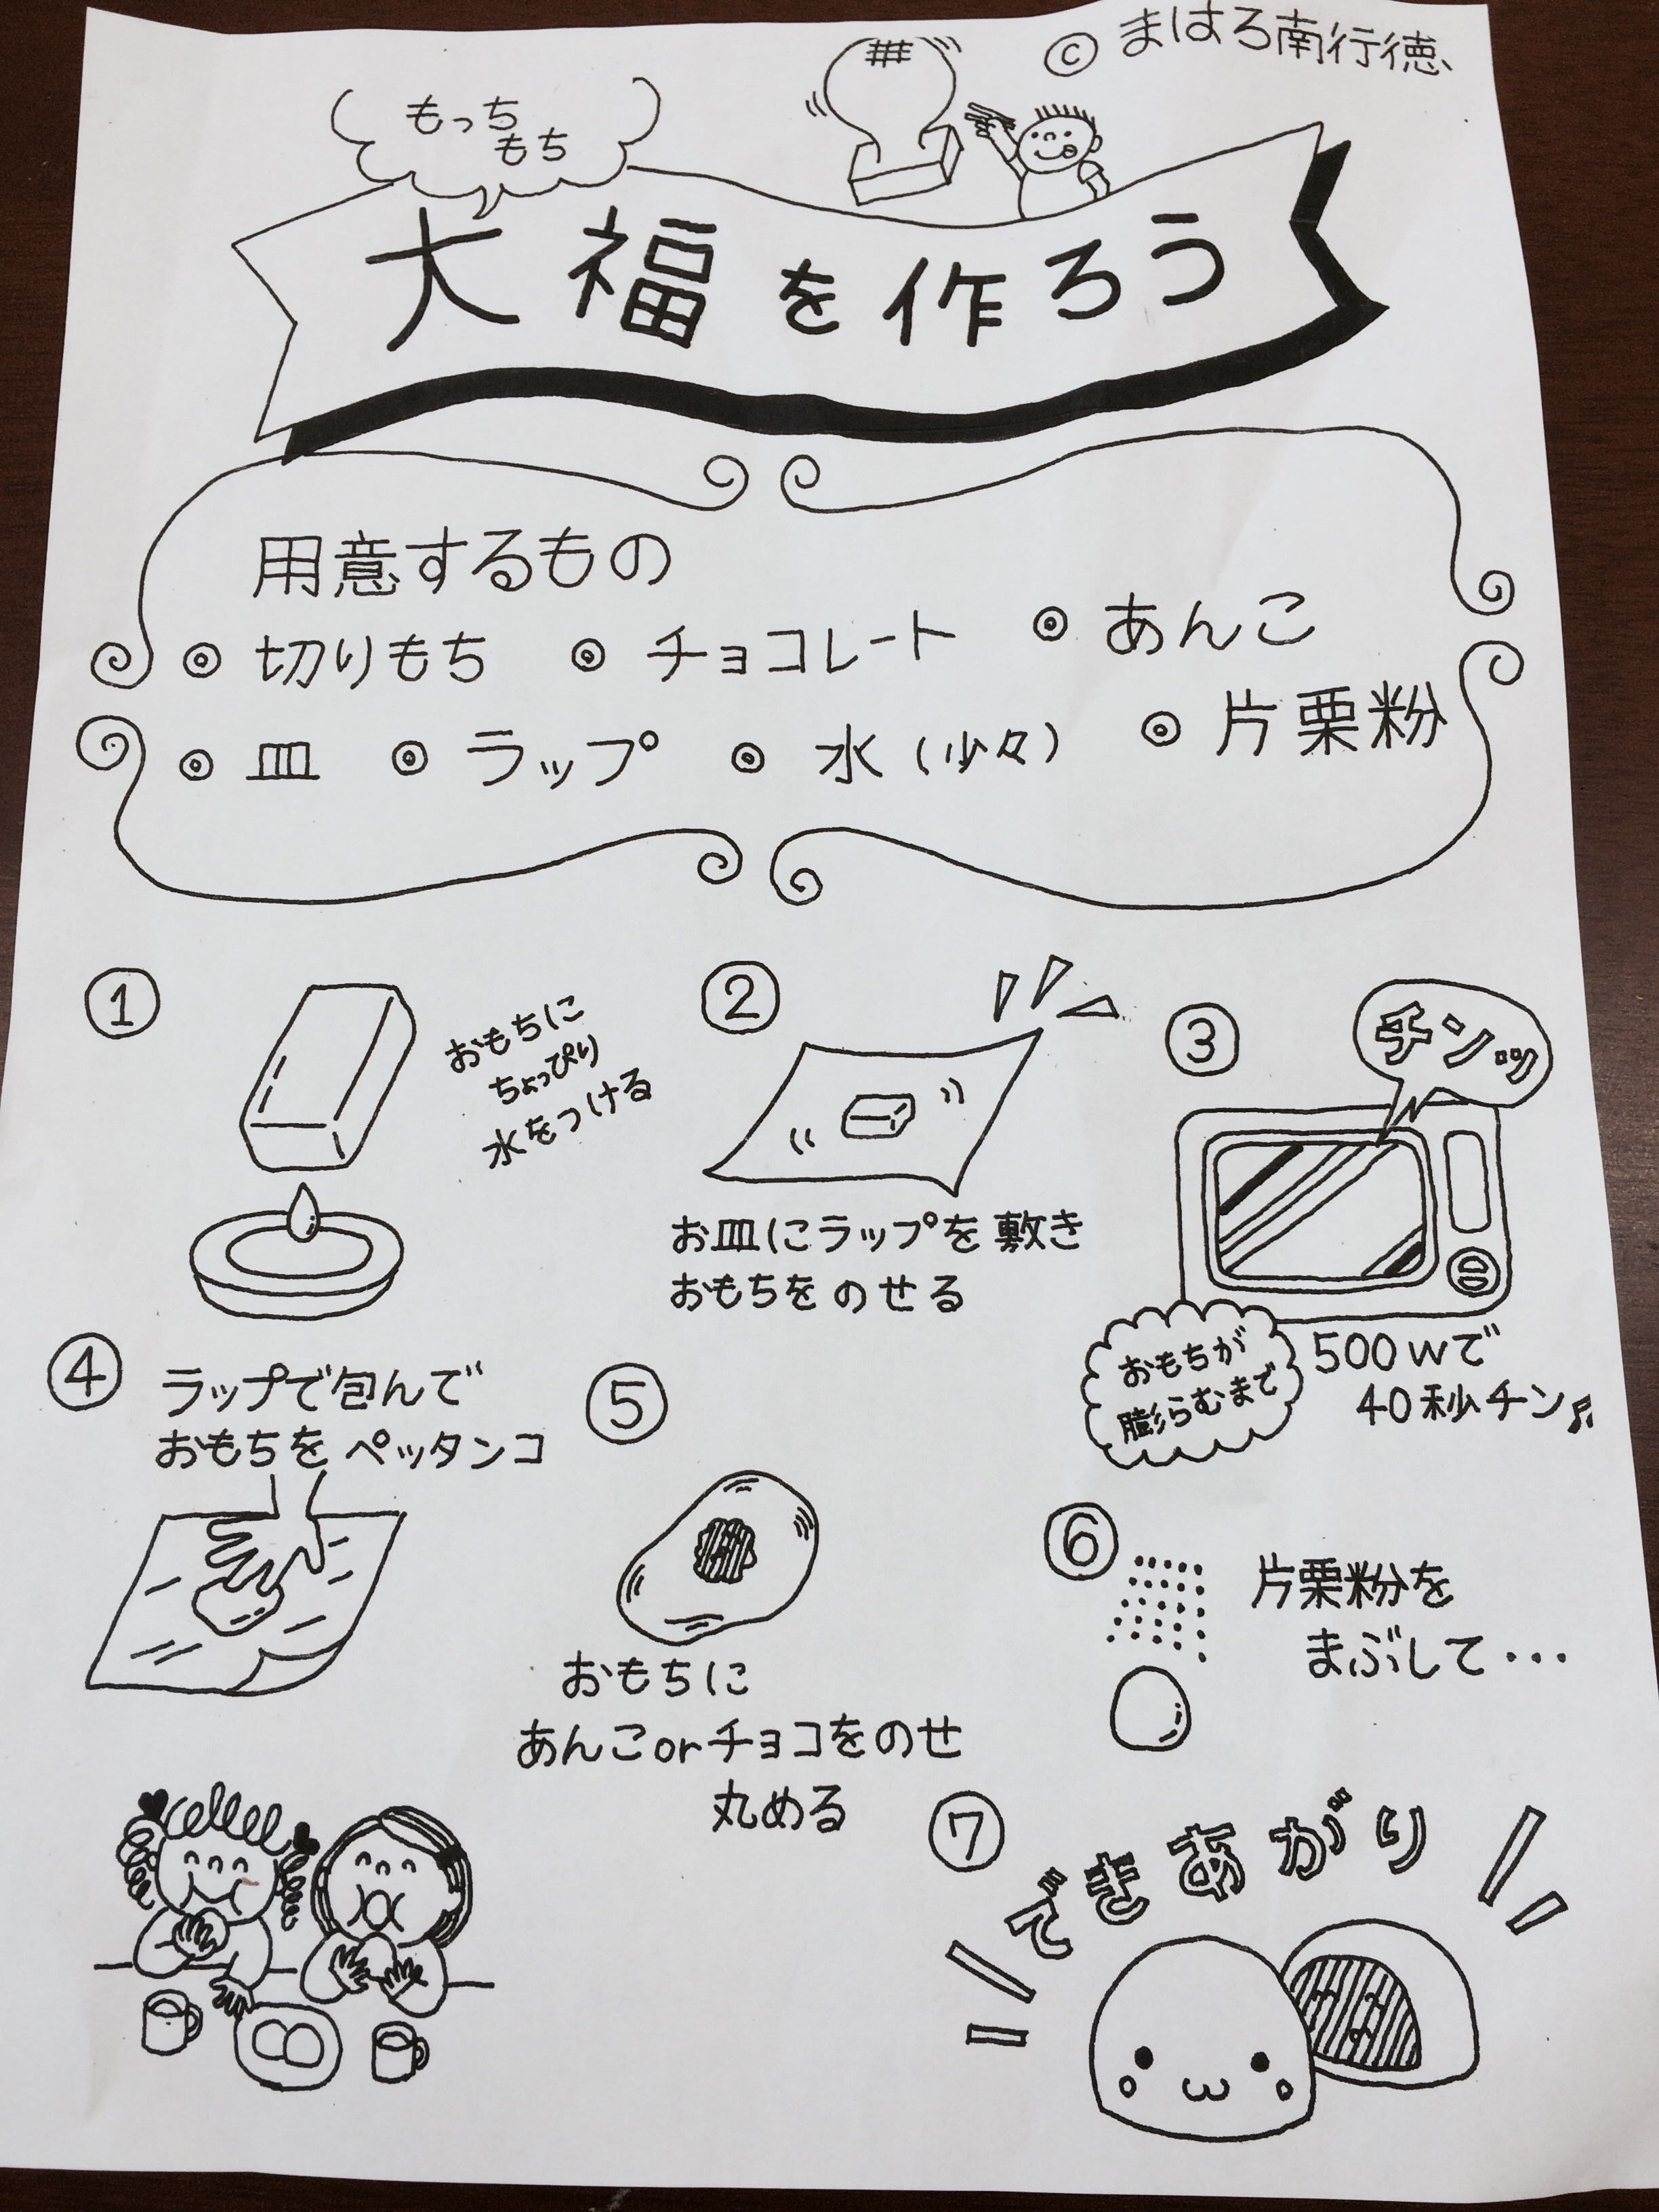 © まはろ南行徳
もっち
もち
大福を作ろう
用意するもの
◎ 切りもち ◎ チョコレート ◎ あんこ
◎ 皿 ◎ ラップ ◎ 水(少々) ◎ 片栗粉
①
おもちに
ちょっぴり
水をつける
②
お皿にラップを敷き
おもちをのせる
③
チンッ
おもちが
膨らむまで
500wで
40秒チン♬
④ ラップで包んで
おもちをペッタンコ
⑤
おもちに
あんこorチョコをのせ
丸める
⑥
片栗粉を
まぶして・・・
⑦ できあがり